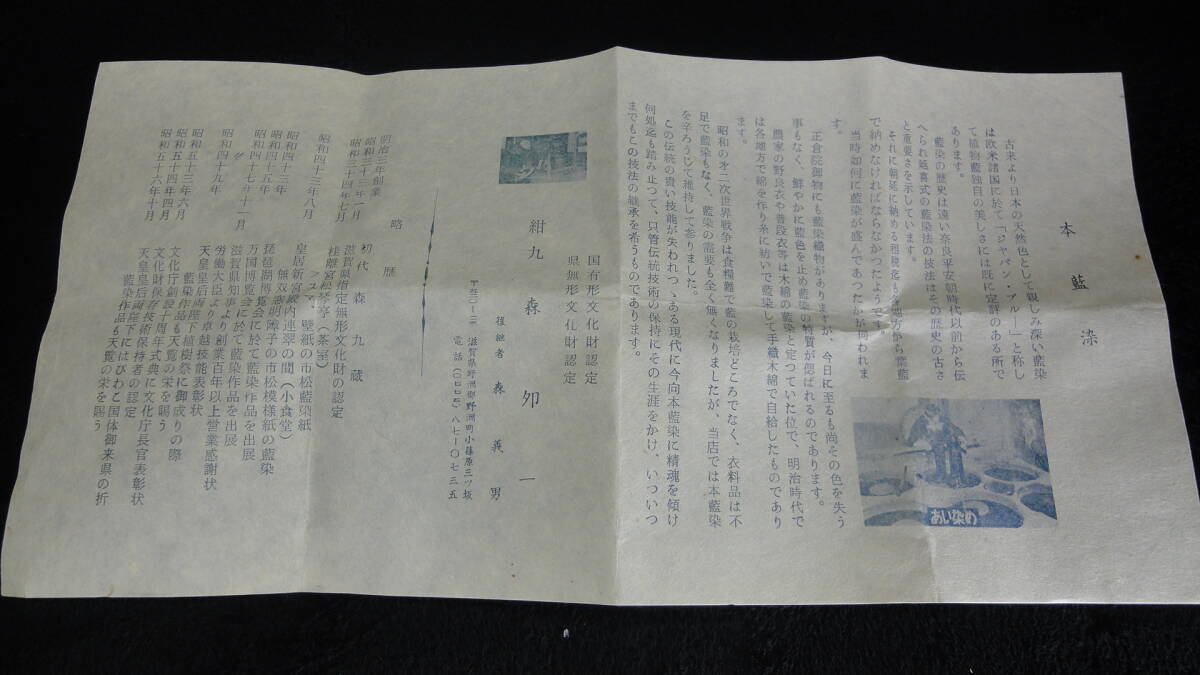 本藍染
古来より日本の天然色として観しみ深い藍染
は欧米諸国に於て「ジャパン・ブルー」と称し
て植物藍独自の美しさには既に定評のある所で
あります。
藍染の歴史は遠い奈良平安朝時代以前から伝
へられ延喜式の藍染法の技法はその歴史の古さ
と重要さを示しています。
それに朝廷に納める租税迄も各地方から葉藍
で納めなければならなかつたようです。
当時如何に藍染が盛んであつたかが伺われま
す。
正倉院御物にも藍染織物がありますが、今日に至るも尚その色を失う
事もなく、鮮やかに藍色を止め藍染の特質が偲ばれるのであります。
農家の野良衣や普段衣等は木綿の藍染と定つていた位で、明治時代で
は各地方で綿を作り糸に紡いで藍染して手織木綿で自給したものであり
ます。
昭和の才二次世界戦争は食糧難で藍の栽培どころでなく、衣料品は不
足で藍染もなく、藍染の需要も全く無くなりましたが、当店では本藍染
を辛ろうじて維持して参りました。
この伝統の貴い技能が失われつゝある現代に今向本藍染に精魂を傾け
何処迄も踏み止つて、只管伝統技術の保持にその生涯をかけ、いついつ
までもこの技法の継承を希うものであります。
あい染め
国有形文化財認定
県無形文化財認定
紺九 森 卯一
後継者 森 義男
滋賀県野洲郡野洲町小篠原三ツ坂
電話(〇七七五)八七ー〇七三五
略歴
明治三年創業 初代 森 九蔵
昭和三十三年一月 滋賀県指定無形文化財の認定
昭和三十四年七月 桂離宮松琴亭(茶室)
フスマ、壁紙の市松藍染紙
昭和四十三年八月 皇居新宮殿内連翠の間(小食堂)
無双窓明障子の市松模様紙の藍染
昭和四十三年 琵琶湖博覧会に於て藍染作品を出展
昭和四十五年 万国博覧会に於て藍染作品を出展
昭和四十七年十一月 滋賀県知事より創業百年以上営業感謝状
昭和四十九年 労働大臣より卓越技能表彰状
昭和五十三年六月 天皇皇后両陛下植樹祭に御成りの際
藍染作品も天覧の栄を賜う
昭和五十四年四月 文化庁創設十周年式典に文化庁長官表彰状
文化財保存技術保持者の認定
昭和五十六年十月 天皇皇后両陛下にはびわこ国体御来県の折
藍染作品も天覧の栄を賜う